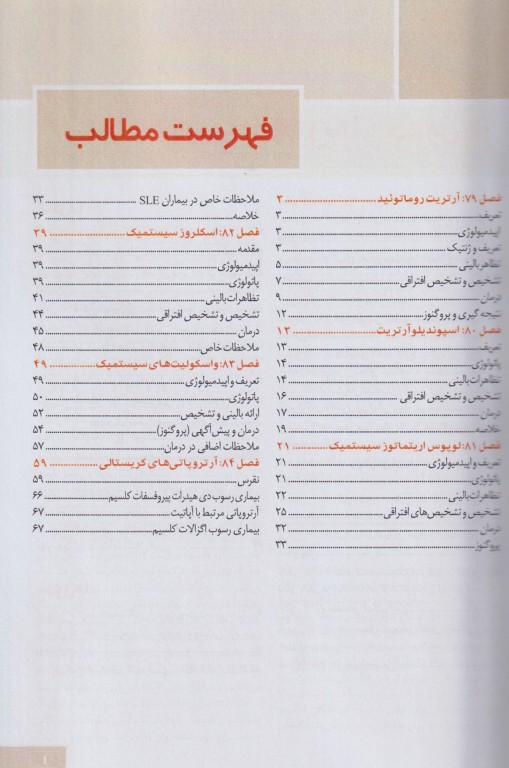 فهرست مطالب
فصل ۷۹: آرتریت روماتوئید ..... ۳
تعریف ..... ۳
اپیدمیولوژی ..... ۳
تعریف و ژنتیک ..... ۳
تظاهر بالینی ..... ۵
تشخیص و تشخیص افتراقی ..... ۷
درمان ..... ۹
نتیجه گیری و پروگنوز ..... ۱۲
فصل ۸۰: اسپوندیلوآرتریت ..... ۱۳
تعریف ..... ۱۳
پاتولوژی ..... ۱۴
تظاهرات بالینی ..... ۱۴
تشخیص و تشخیص افتراقی ..... ۱۶
درمان ..... ۱۷
خلاصه ..... ۱۹
فصل ۸۱: لوپوس اریتماتوز سیستمیک ..... ۲۱
تعریف و اپیدمیولوژی ..... ۲۱
پاتولوژی ..... ۲۱
تظاهرات بالینی ..... ۲۲
تشخیص و تشخیص های افتراقی ..... ۲۵
درمان ..... ۳۲
پروگنوز ..... ۳۳
ملاحظات خاص در بیماران SLE ..... ۳۳
خلاصه ..... ۳۶
فصل ۸۲: اسکلروز سیستمیک ..... ۳۹
مقدمه ..... ۳۹
اپیدمیولوژی ..... ۳۹
پاتولوژی ..... ۳۹
تظاهرات بالینی ..... ۴۱
تشخیص و تشخیص افتراقی ..... ۴۴
درمان ..... ۴۵
ملاحظات خاص ..... ۴۸
فصل ۸۳: واسکولیت‌های سیستمیک ..... ۴۹
تعریف و اپیدمیولوژی ..... ۴۹
پاتولوژی ..... ۵۰
ارائه بالینی و تشخیص ..... ۵۲
درمان و پیش‌آگهی (پروگنوز) ..... ۵۴
ملاحظات اضافی در درمان ..... ۵۷
فصل ۸۴: آرتروپاتی‌های کریستالی ..... ۵۹
نقرس ..... ۵۹
بیماری رسوب دی هیدرات پیروفسفات کلسیم ..... ۶۶
آرتروپاتی مرتبط با آپاتیت ..... ۶۷
بیماری رسوب اگزالات کلسیم ..... ۶۷